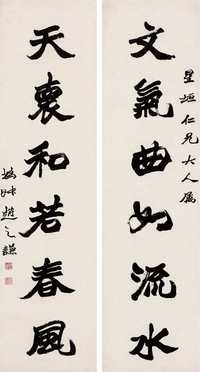 星垣仁兄大人属
文氣曲如流水
天裏和若春風
撝叔趙之謙